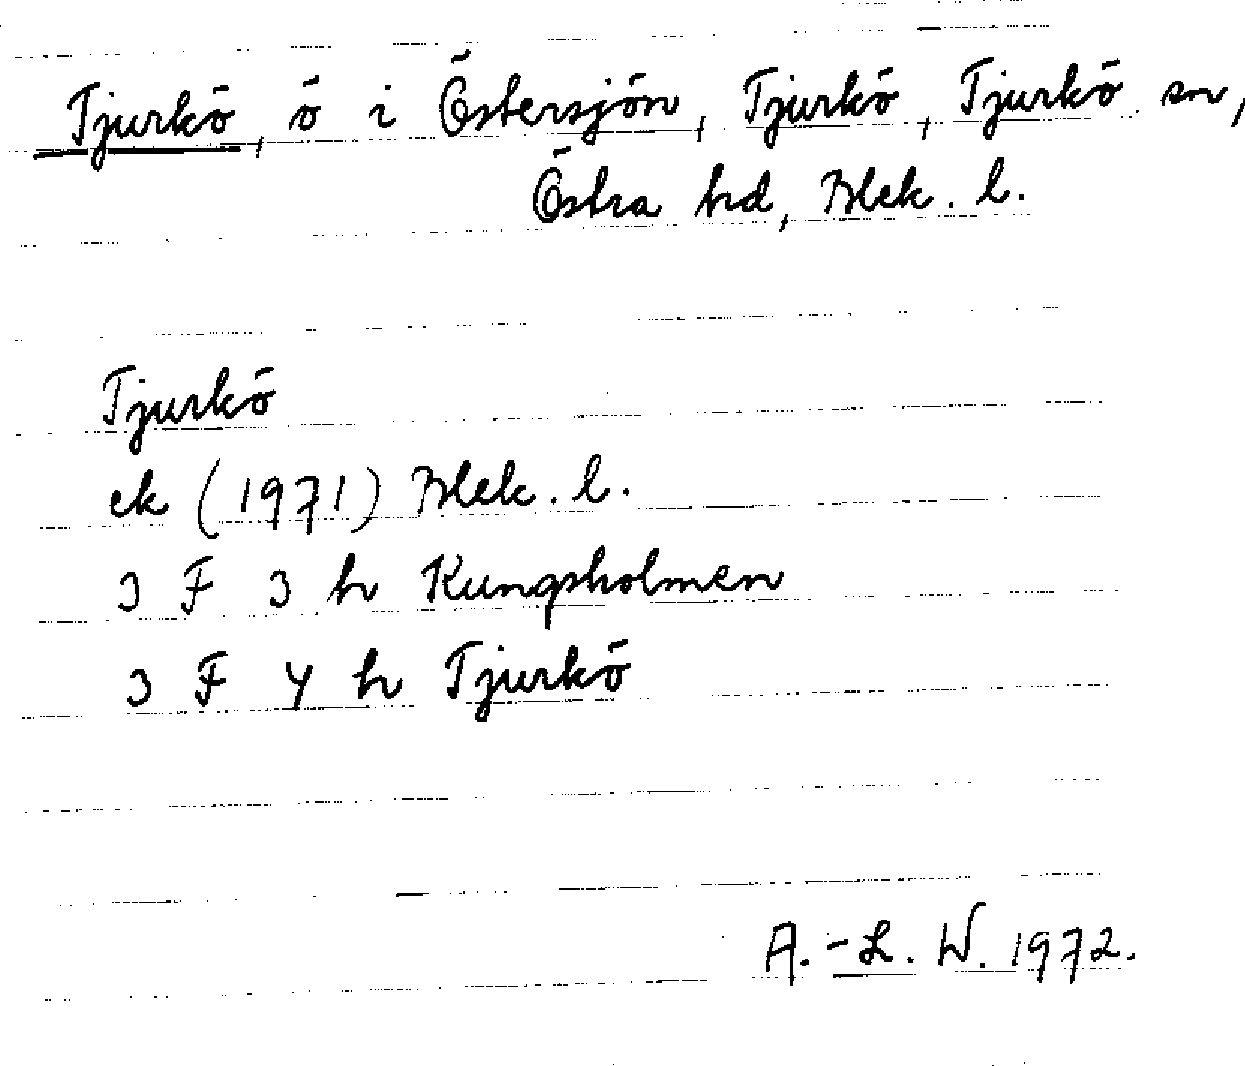 Tjurkö, ö i Östersjön, Tjurkö, Tjurkö sn,
Östra hd, Blek. l.
Tjurkö
ek (1971) Blek. l.
3 F 3 h Kungsholmen
3 F 4 h Tjurkö
A.-L. W. 1972.